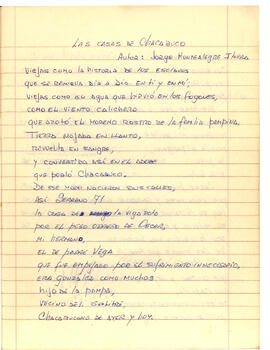 LAS CASAS DE CHACABUCO
Autor: Jorge Montealegre Iturra
Viejas como la historia de los esclavos
que se renueva día a día. En ti y en mí;
Viejas como esa agua que hirvió en los fogones,
como el viento calichero
que azotó el moreno rostro de la familia pampina.
Tierra mojada en llanto,
revuelta en sangre,
y convertida así en el adobe
que pobló Chacabuco.
De ese modo nacieron sus calles,
Así Serrano 71
la casa de la viga
por el peso de Oscar,
mi hermano,
el de padre Vega
que fue empujado por el sufrimiento innecesario,
era González como muchos
hijo de la pampa,
vecino del salitre,
Chacabucano de ayer y hoy.